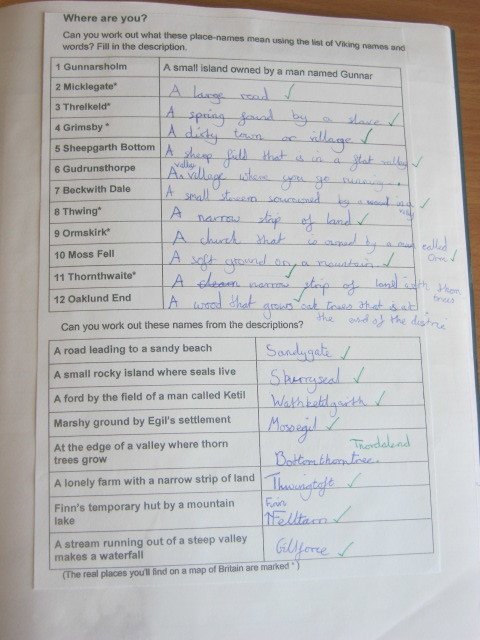 Where are you?
Can you work out what these place-names mean using the list of Viking names and
words? Fill in the description.
1 Gunnarsholm A small island owned by a man named Gunnar
2 Micklegate* A large road ✓
3 Threlkeld* A spring found by a slave ✓
4 Grimsby* A dirty town or village ✓
5 Sheepgarth Bottom A sheep field that is in a flat valley ✓
6 Gudrunsthorpe A village where you go
7 Beckwith Dale A small stream by a wood in a ✓
8 Thwing* A narrow strip of land ✓
9 Ormskirk* A church that is owned by a man called
Orm ✓
10 Moss Fell A soft ground on a mountain ✓
11 Thornthwaite* A narrow strip of land with thorn
trees ✓
12 Oaklund End A wood that grows oak trees that is at
the end of the
Can you work out these names from the descriptions?
A road leading to a sandy beach Sandygate ✓
A small rocky island where seals live Skerryseal ✓
A ford by the field of a man called Ketil Wathketilgarth ✓
Marshy ground by Egil's settlement Mossegil ✓
At the edge of a valley where thorn
trees grow Bottomthorntree. Thordalend
A lonely farm with a narrow strip of land Thwingtoft ✓
Finn's temporary hut by a mountain
lake Finn Felltarn ✓
A stream running out of a steep valley
makes a waterfall Gillforce ✓
(The real places you'll find on a map of Britain are marked *)